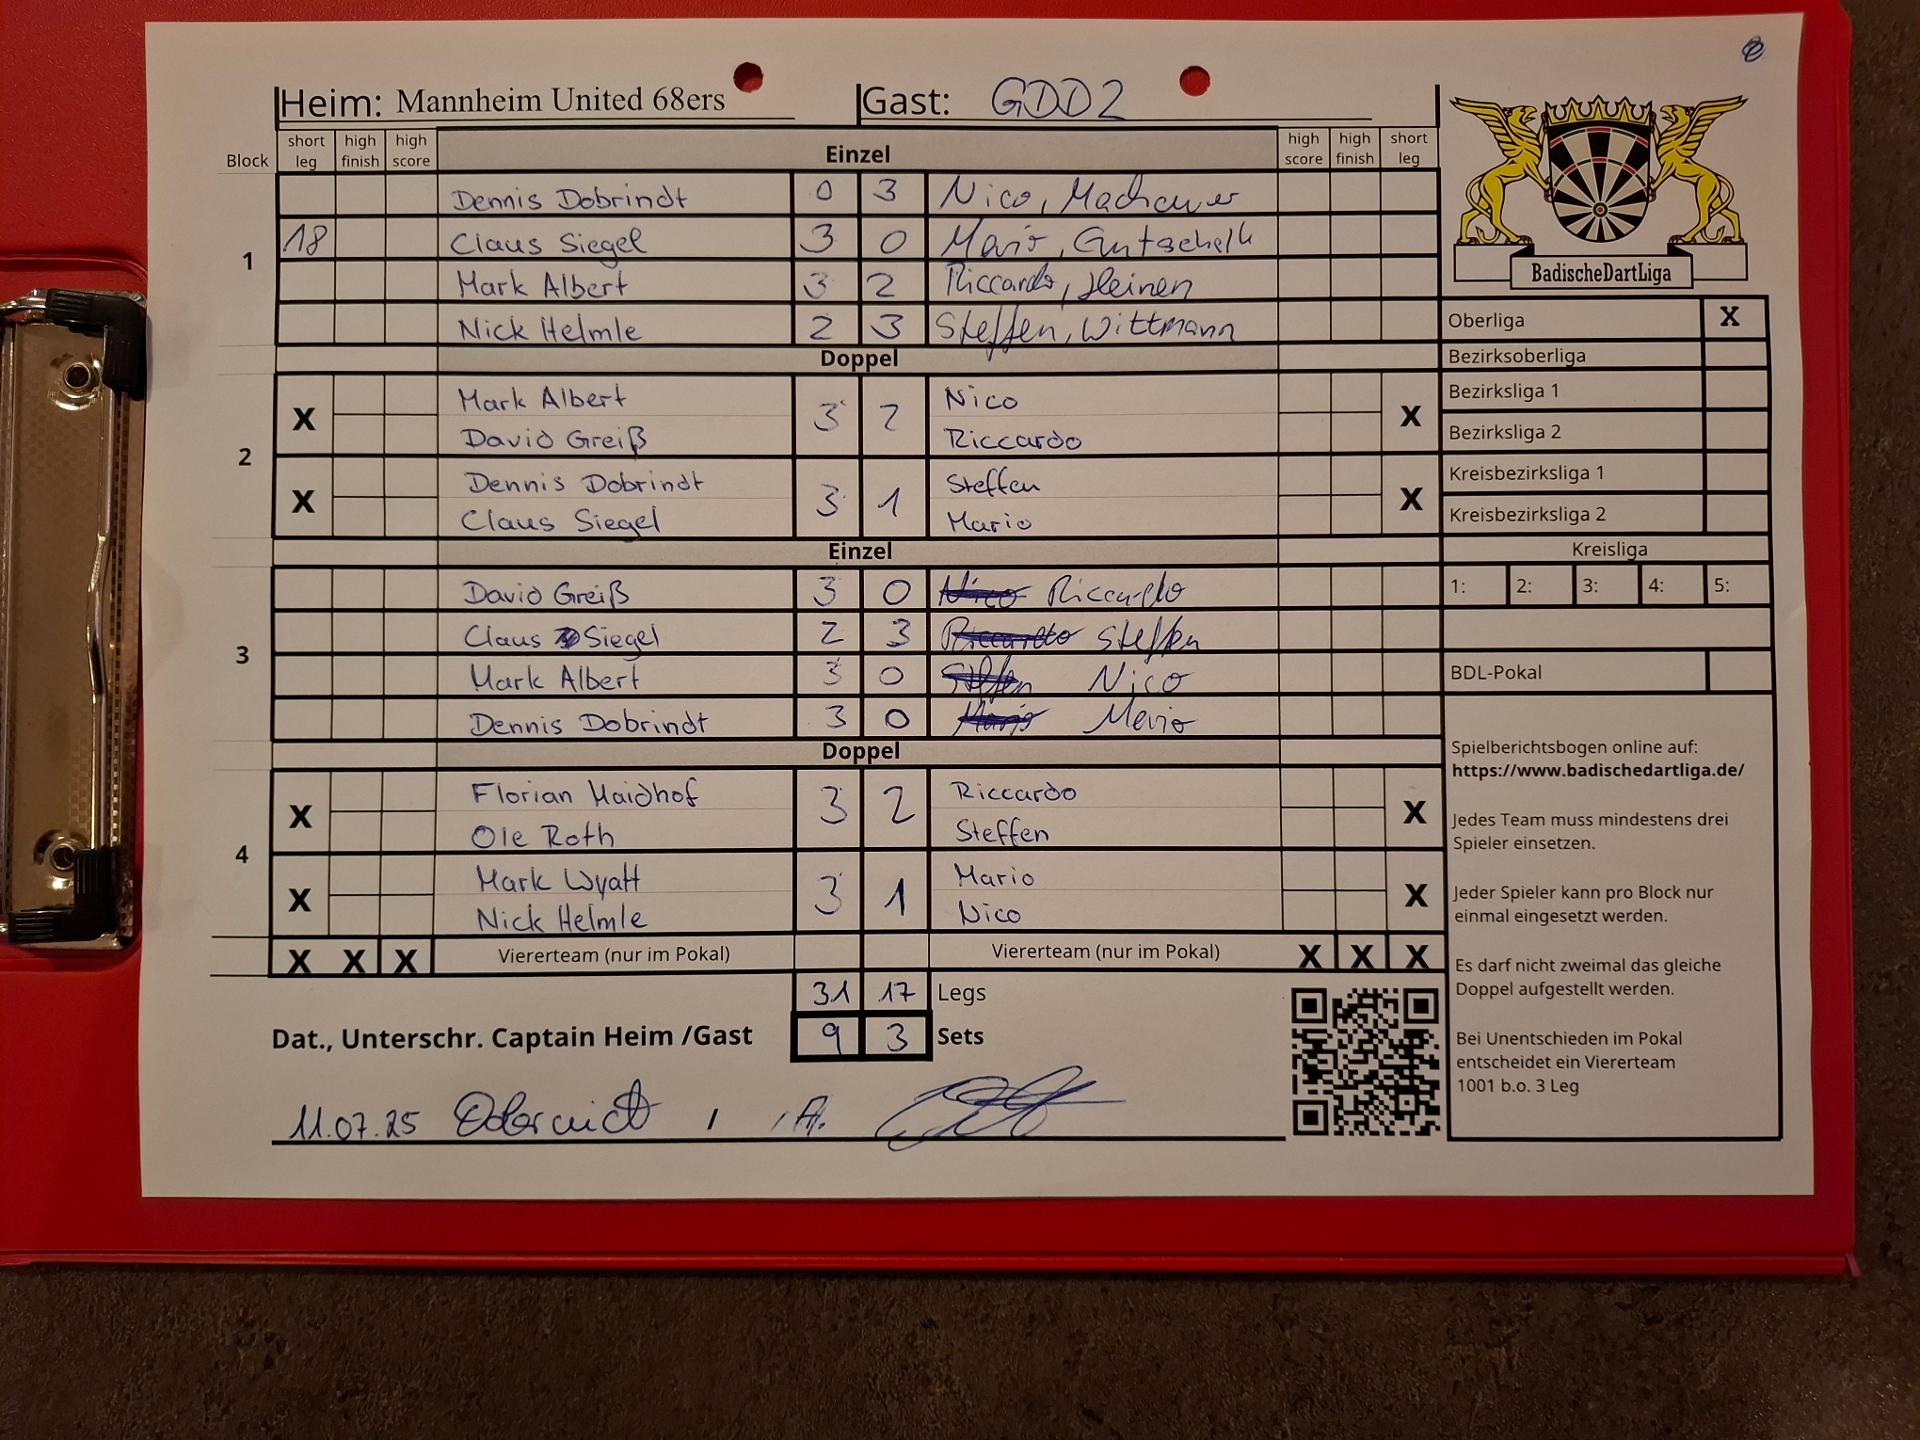 Heim: Mannheim United 68ers Gast: GDD2
Block short leg high finish high score Einzel high score high finish short leg
1
Dennis Dobrindt 0 3 Nico, Machauer
18 Claus Siegel 3 0 Mario, Gutschalk
Mark Albert 3 2 Riccardo, Heinen
Nick Helmle 2 3 Steffen, Wittmann
Doppel
2
X Mark Albert 3 2 Nico X
David Greiß Riccardo
X Dennis Dobrindt 3 1 Steffen X
Claus Siegel Mario
Einzel
3
David Greiß 3 0 Nico Riccardo
Claus Siegel 2 3 Riccardo Steffen
Mark Albert 3 0 Steffen Nico
Dennis Dobrindt 3 0 Mario Mario
Doppel
4
X Florian Maidhof 3 2 Riccardo X
Ole Roth Steffen
X Mark Wyatt 3 1 Mario X
Nick Helmle Nico
X X X Viererteam (nur im Pokal) Viererteam (nur im Pokal) X X X
31 17 Legs
Dat., Unterschr. Captain Heim /Gast 9 3 Sets
11.07.25 /
BadischeDartLiga
Oberliga X
Bezirksoberliga
Bezirksliga 1
Bezirksliga 2
Kreisbezirksliga 1
Kreisbezirksliga 2
Kreisliga
1: 2: 3: 4: 5:
BDL-Pokal
Spielberichtsbogen online auf:
https://www.badischedartliga.de/
Jedes Team muss mindestens drei
Spieler einsetzen.
Jeder Spieler kann pro Block nur
einmal eingesetzt werden.
Es darf nicht zweimal das gleiche
Doppel aufgestellt werden.
Bei Unentschieden im Pokal
entscheidet ein Viererteam
1001 b.o. 3 Leg